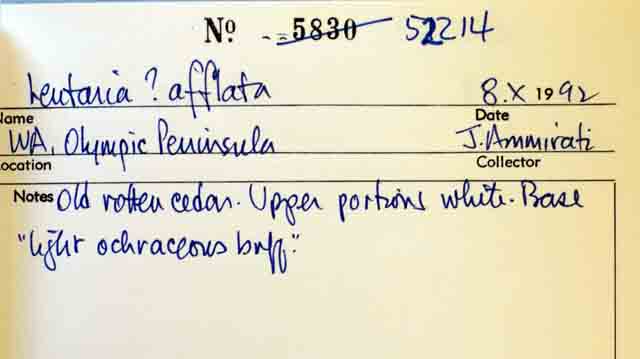 Nº 5830 52214
Lentaria ? afflata 8.X 1992
Name Date
WA, Olympic Peninsula J. Ammirati
Location Collector
Notes Old rotten cedar. Upper portions white. Base
"light ochraceous buff."